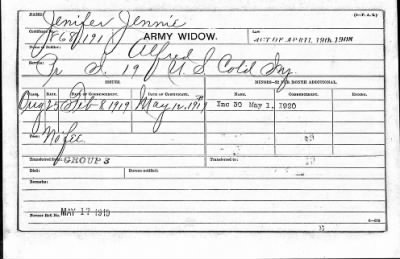 NAME:
Jenifer Jennie
(3-F. A. S.)
Certificate No.
868,191
ARMY WIDOW.
Law:
ACT OF APRIL 19th, 1908
Name of Soldier:
Alfred
Service:
Pr D. 19 U S Cold Inf
ISSUE.
MINORS—$2 PER MONTH ADDITIONAL.
CLASS. RATE. DATE OF COMMENCEMENT. DATE OF CERTIFICATE. NAME. COMMENCEMENT. ENDING.
Orig 25 Feb 8 1919 May 12, 1919 Inc 30 May 1, 1920
Fees: No fee.
Transferred to
GROUP 3
Died:
Bureau notified:
Remarks:
Former Roll No.
MAY 17 1919